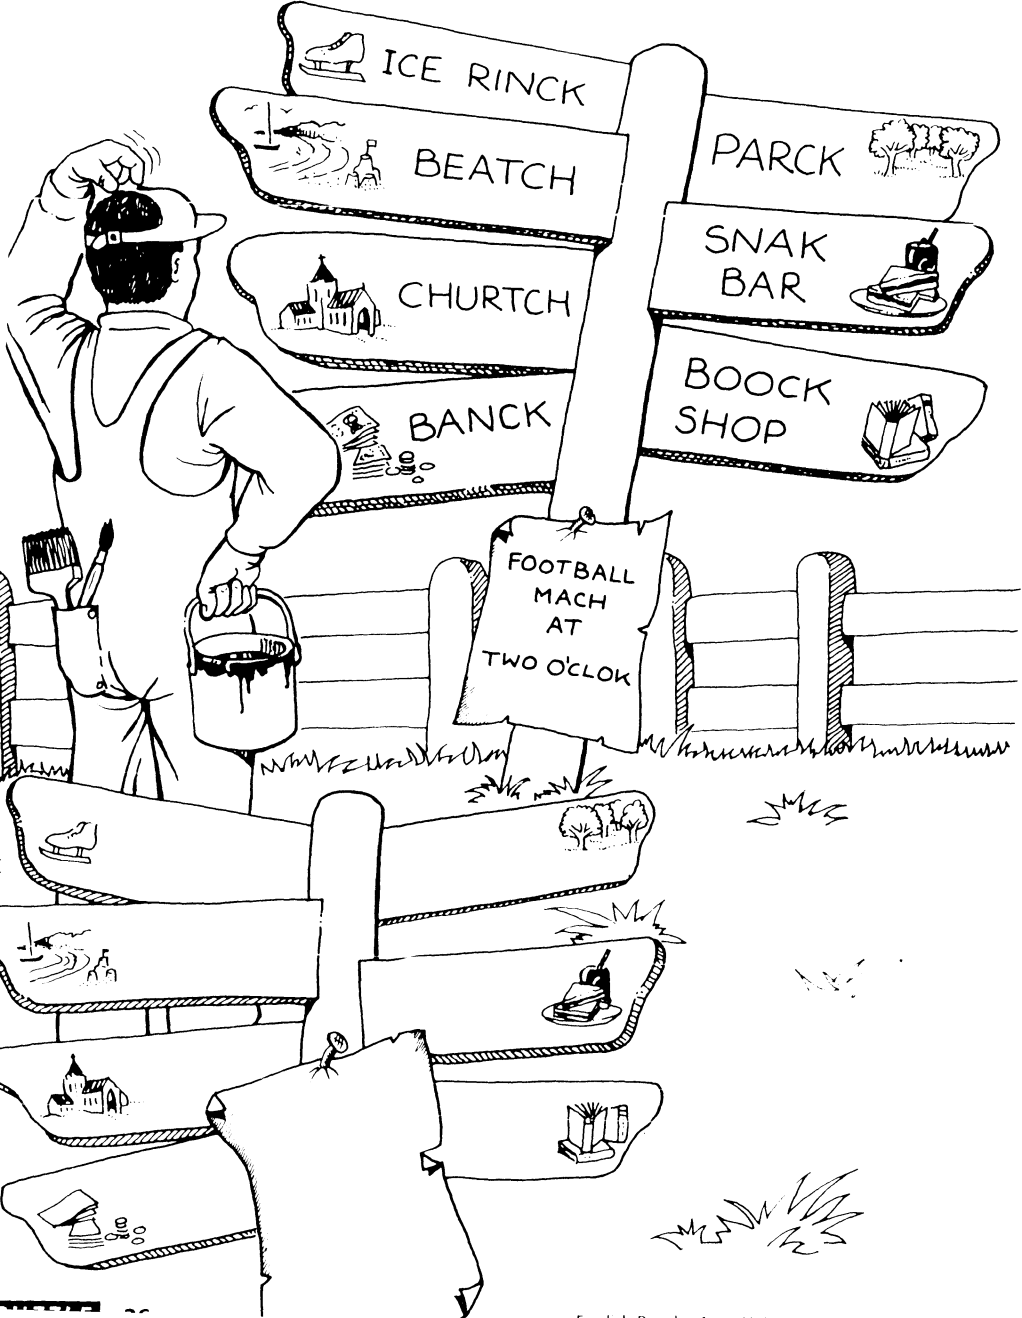 ICE RINCK
BEATCH
CHURTCH
BANCK
PARCK
SNAK
BAR
BOOCK
SHOP
FOOTBALL
MACH
AT
TWO O'CLOK